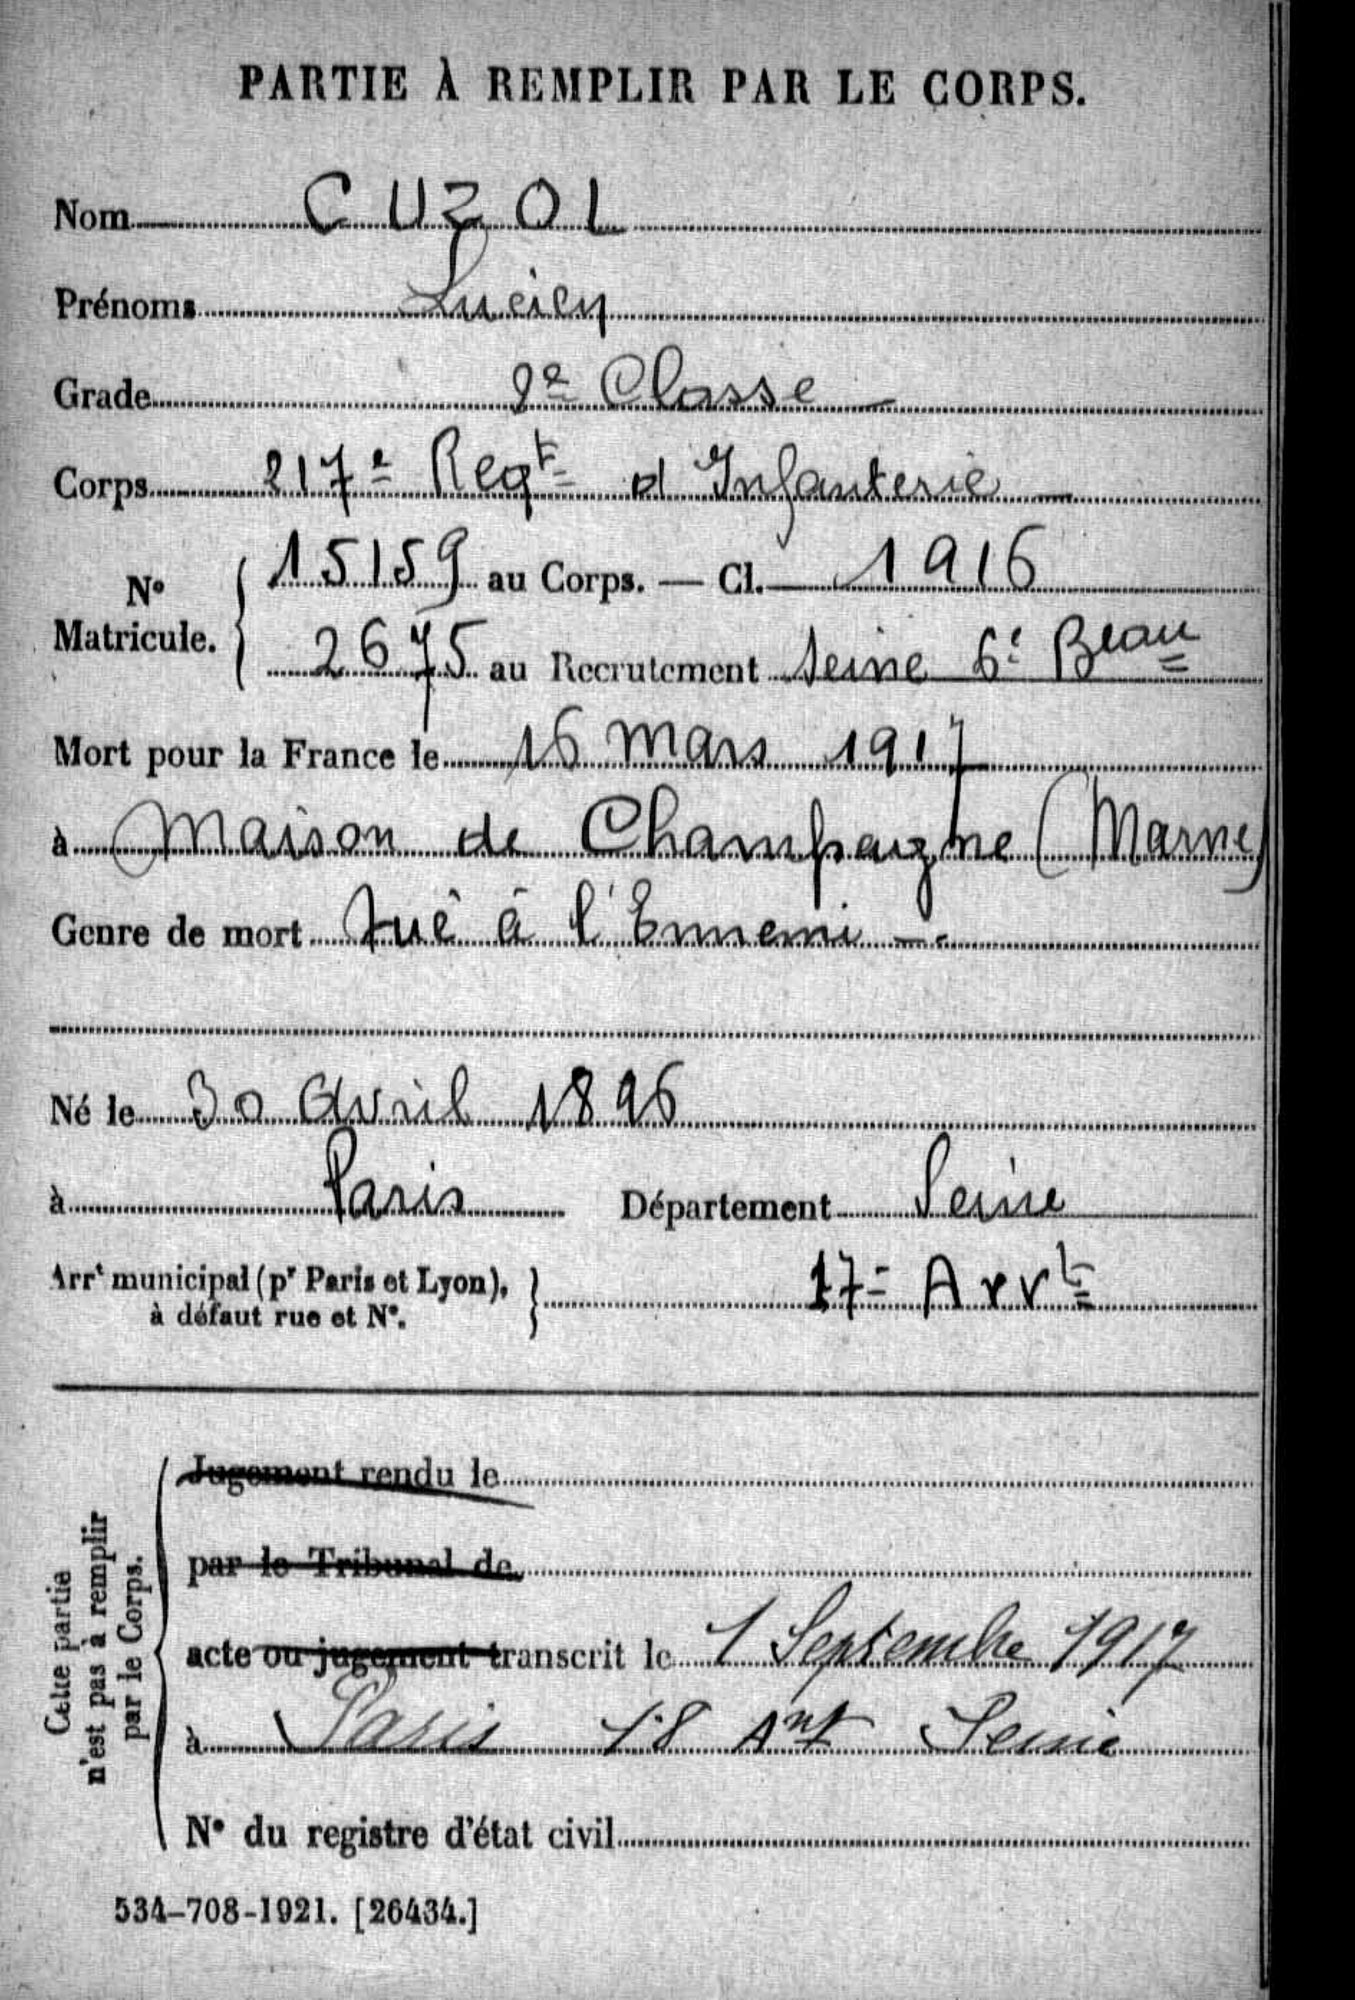 PARTIE À REMPLIR PAR LE CORPS.
Nom CUZOL
Prénoms Lucien
Grade 2e Classe
Corps 217e Regt d Infanterie
No Matricule. { 15159 au Corps. — Cl. 1916
2675 au Recrutement Seine 6e Beau
Mort pour la France le 16 mars 1917
à Maison de Champagne (Marne)
Genre de mort tué à l'Ennemi
Né le 30 Avril 1896
à Paris Département Seine
Arrt municipal (pr Paris et Lyon), à défaut rue et No. } 17e Arrt
Cette partie n'est pas à remplir par le Corps.
Jugement rendu le
par le Tribunal de
acte ou jugement transcrit le 1 Septembre 1917
à Paris 18 Art Seine
No du registre d'état civil
534-708-1921. [26434.]